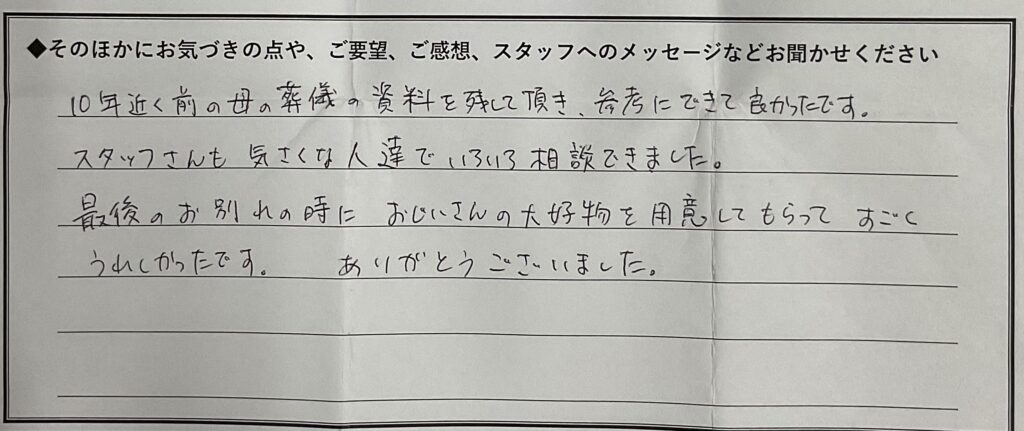 ◆そのほかにお気づきの点や、ご要望、ご感想、スタッフへのメッセージなどお聞かせください
10年近く前の母の葬儀の資料を残して頂き、参考にできて良かったです。
スタッフさんも気さくな人達でいろいろ相談できました。
最後のお別れの時に おじいさんの大好物を用意してもらって すごく
うれしかったです。 ありがとうございました。